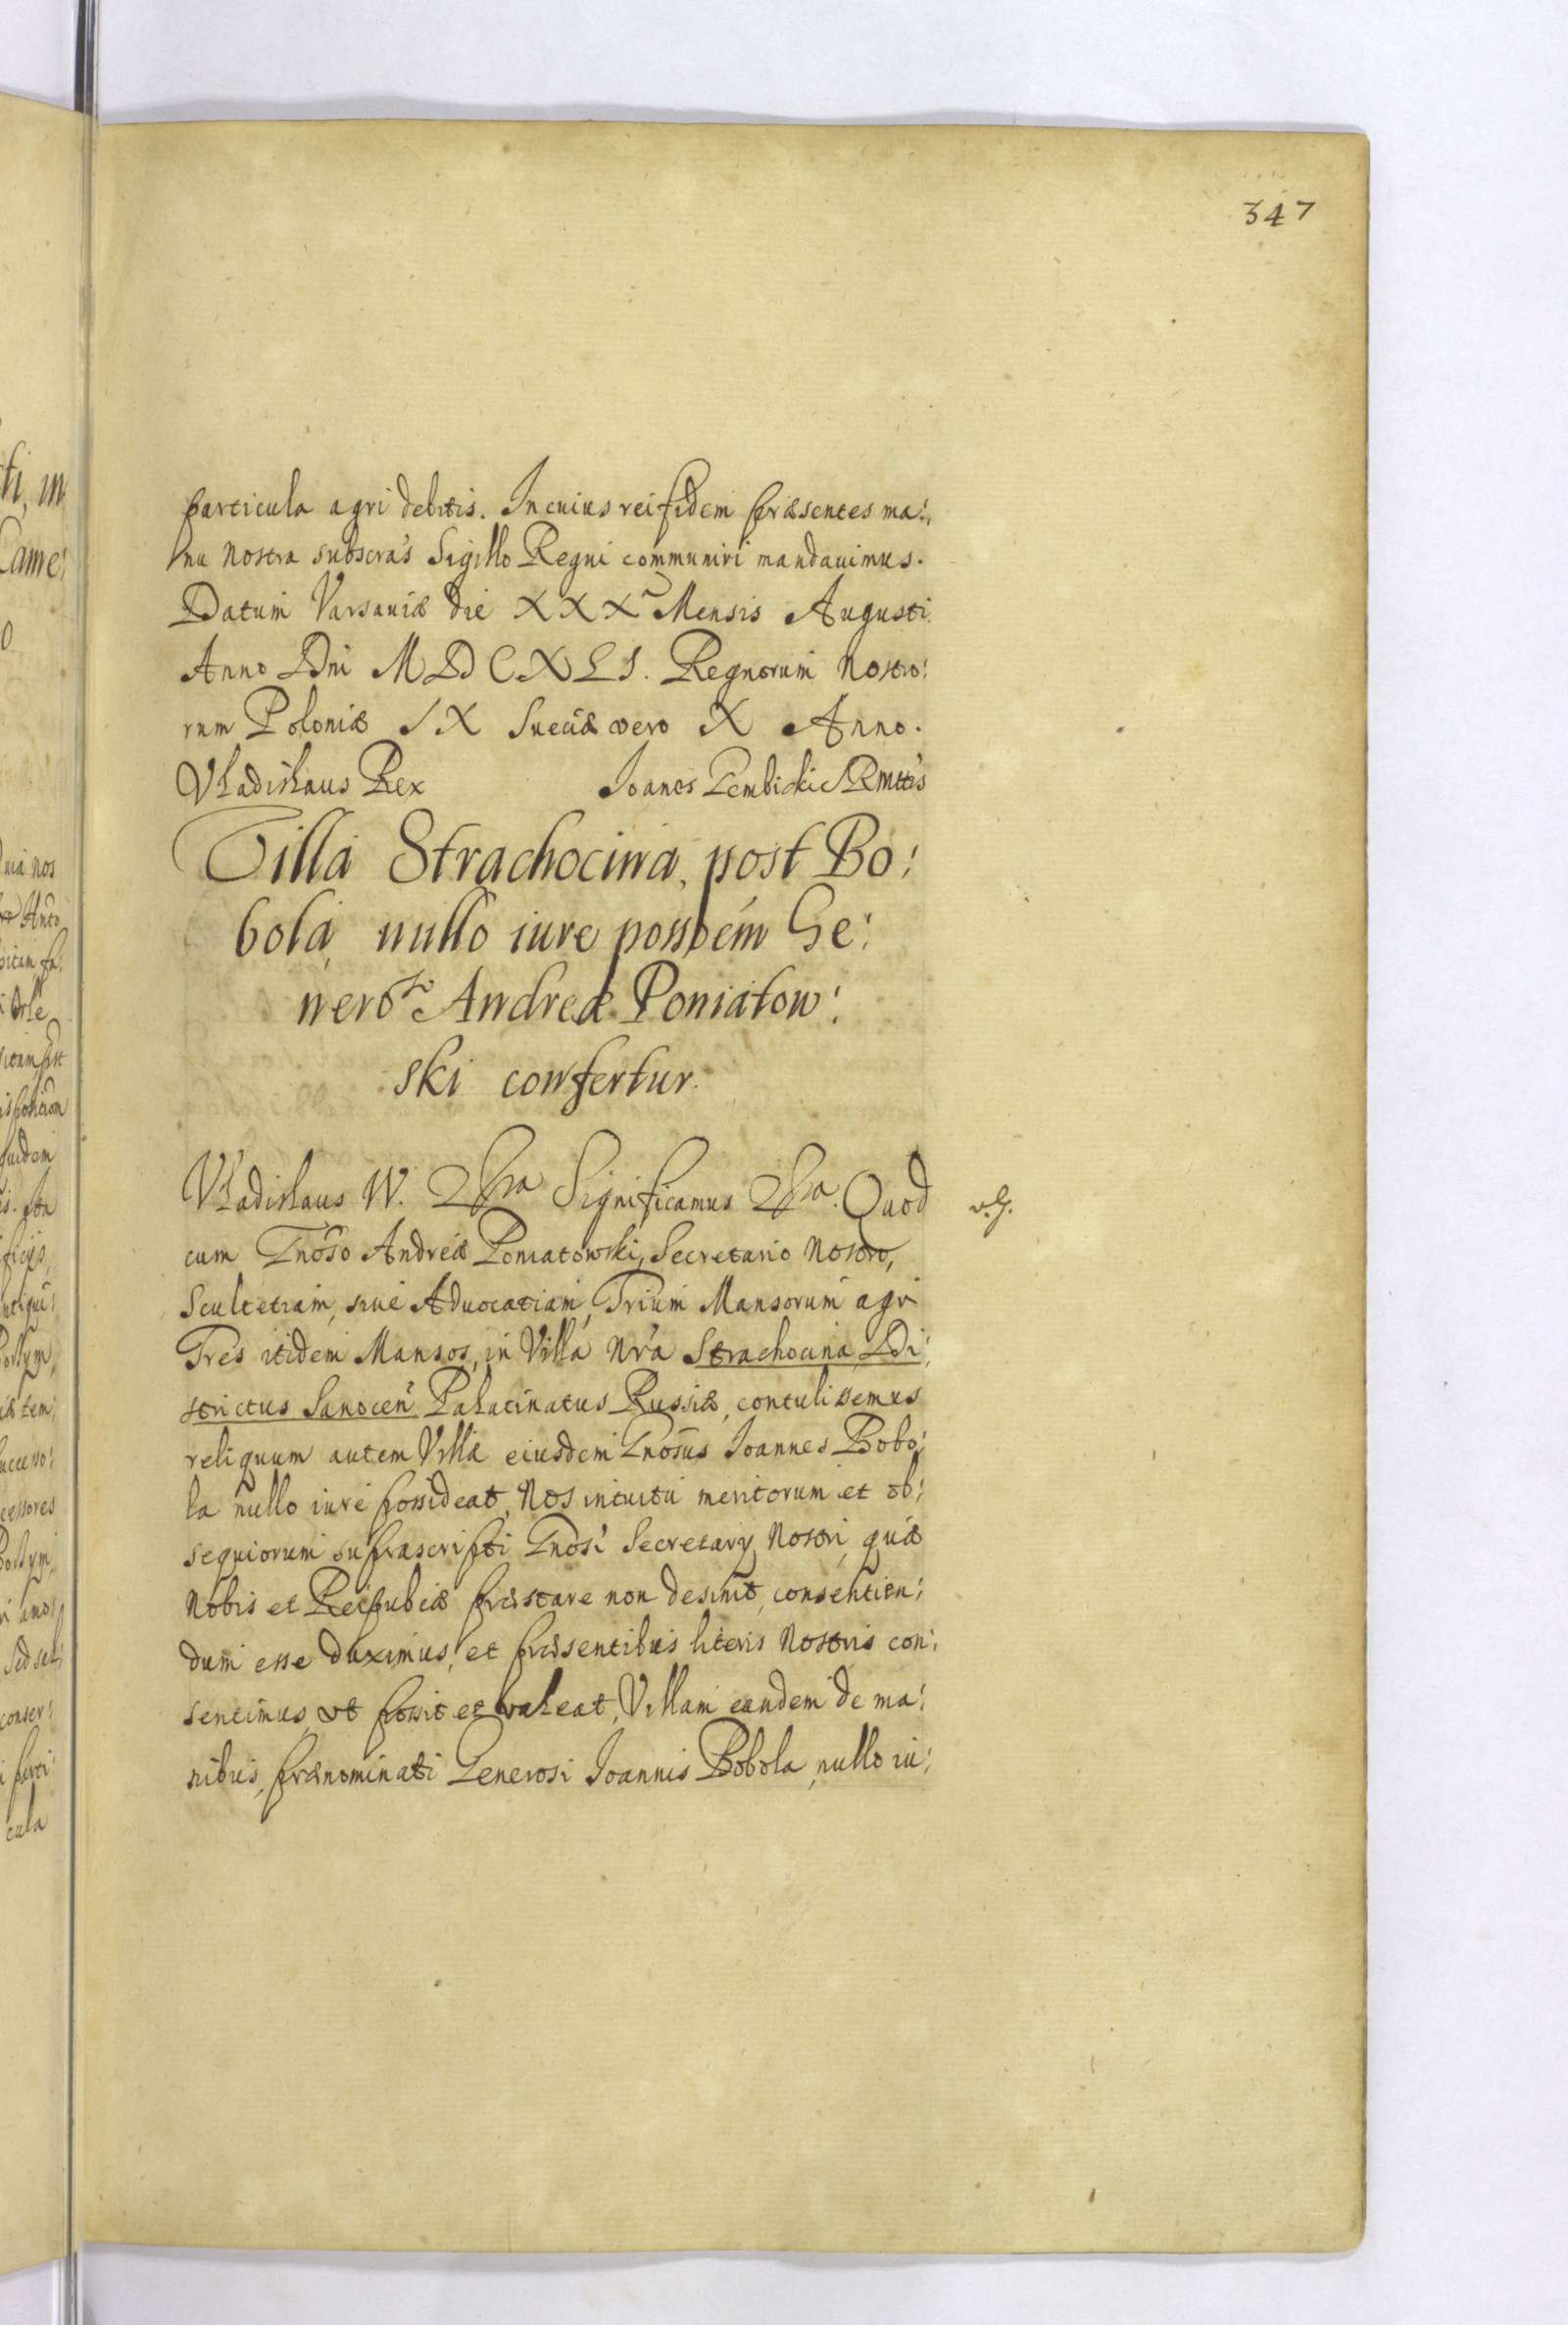 347
particula agri debitis. In cuius rei fidem præsentes ma:
nu nostra subscra's Sigillo Regni communiri mandauimus.
Datum Varsauiæ die XXX Mensis Augusti
Anno Dni MDCXLI. Regnorum Nostro:
rum Poloniæ IX Sueciæ vero X Anno.
Vladislaus Rex Joanes Gembicki
Villa Strachocina, post Bo:
bola, nullo iure possōem Ge:
neroso Andreæ Poniatow:
ski confertur.
Vladislaus IV. Significamus Quod
cum Gnoso Andreæ Poniatowski, Secretario Nostro,
Scultetiam, siue Aduocatiam, Trium Mansorum agri
Tres itidem Mansos, in Villa Nra Strachocina, Di:
strictus Sanocen Palatinatus Russiæ, contulissemus
reliquum autem Villæ eiusdem Gnosus Joannes Bobo:
la nullo iure possideat, Nos intuitu meritorum et ob:
sequiorum suprascripti Gnosi Secretarij Nostri, quæ
Nobis et Reipubcæ præstare non desinit, consentien:
dum esse duximus, et præsentibus literis Nostris con:
sentimus, vt possit et valeat, Villam eandem de ma:
nibus, prænominati Generosi Joannis Bobola, nullo iu:
ti, in
Came:
cula